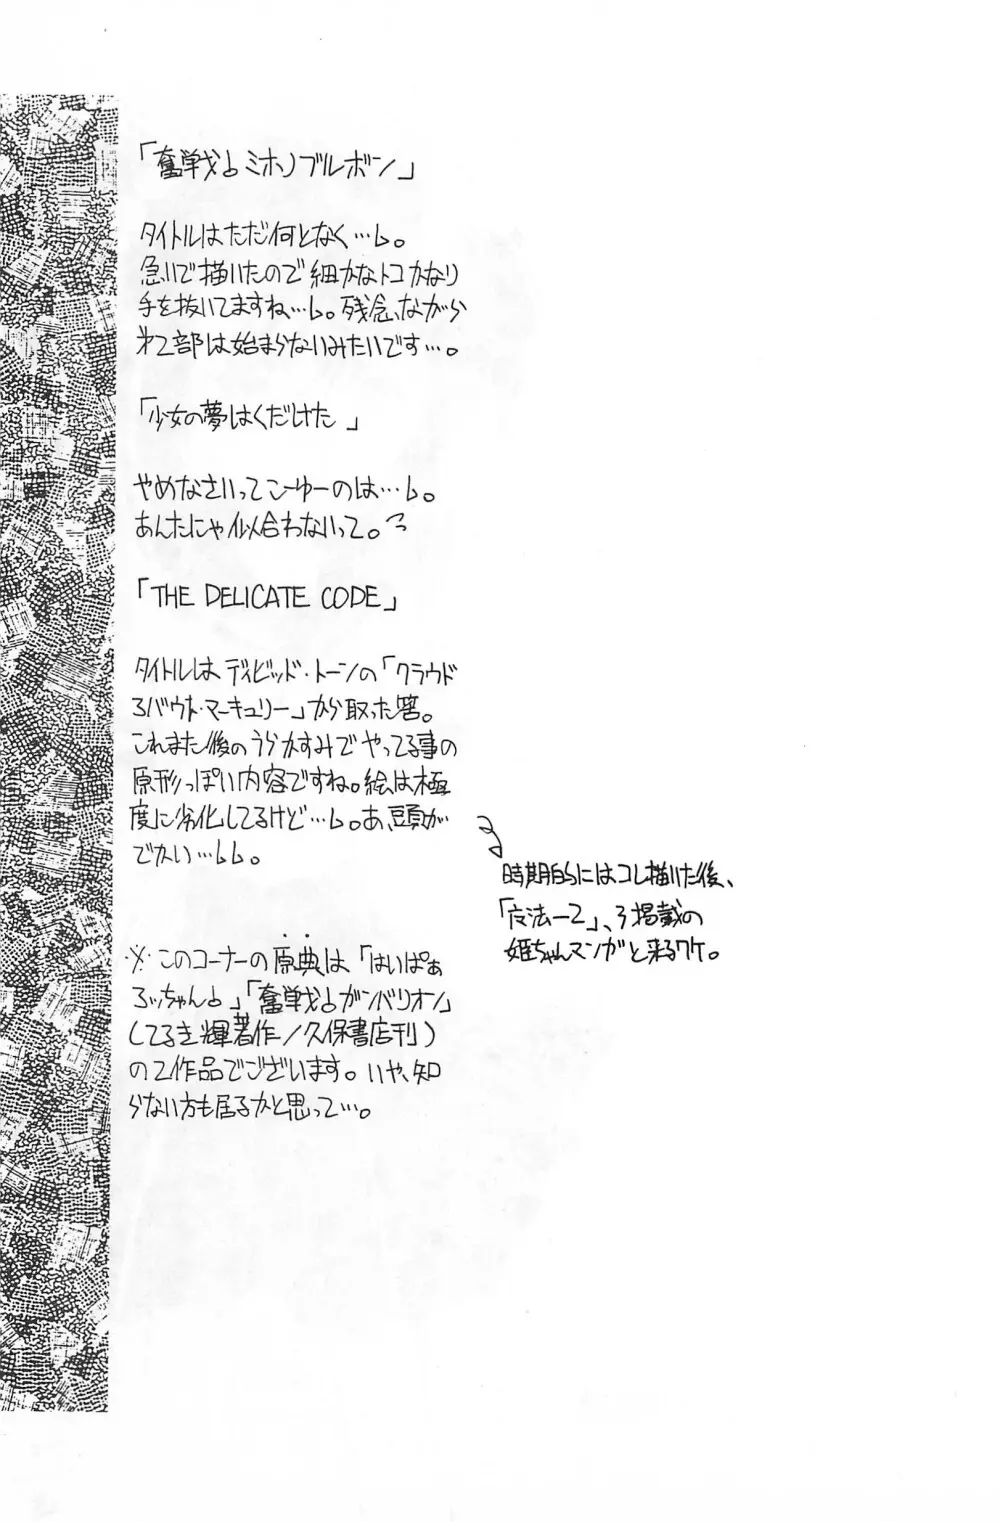 「奮戦♭ミホノブルボン」
タイトルはただ何となく…♭。
急いで描いたので細かなトコかなり
手を抜いてますね…♭。残念ながら
第2部は始まらないみたいです…。
「少女の夢はくだけた」
やめなさいってこーゆーのは…♭。
あんたにゃ似合わないって。
「THE DELICATE CODE」
タイトルはディビッド・トーンの「クラウド
アバウト・マーキュリー」から取った筈。
これまた後のうらかすみでやってる事の
原形っぽい内容ですね。絵は極
度に劣化してるけど…♭。あ、頭が
でかい…♭♭。
時期的にはコレ描いた後、
掲載の
姫ちゃんマンガと来るワケ。
※このコーナーの原典は「はいぱぁ
ろっちゃん♭」「奮戦♭ガンバリオン」
(てるき輝著作/久保書店刊)
の2作品でございます。いや、知
らない方も居るかと思って…。